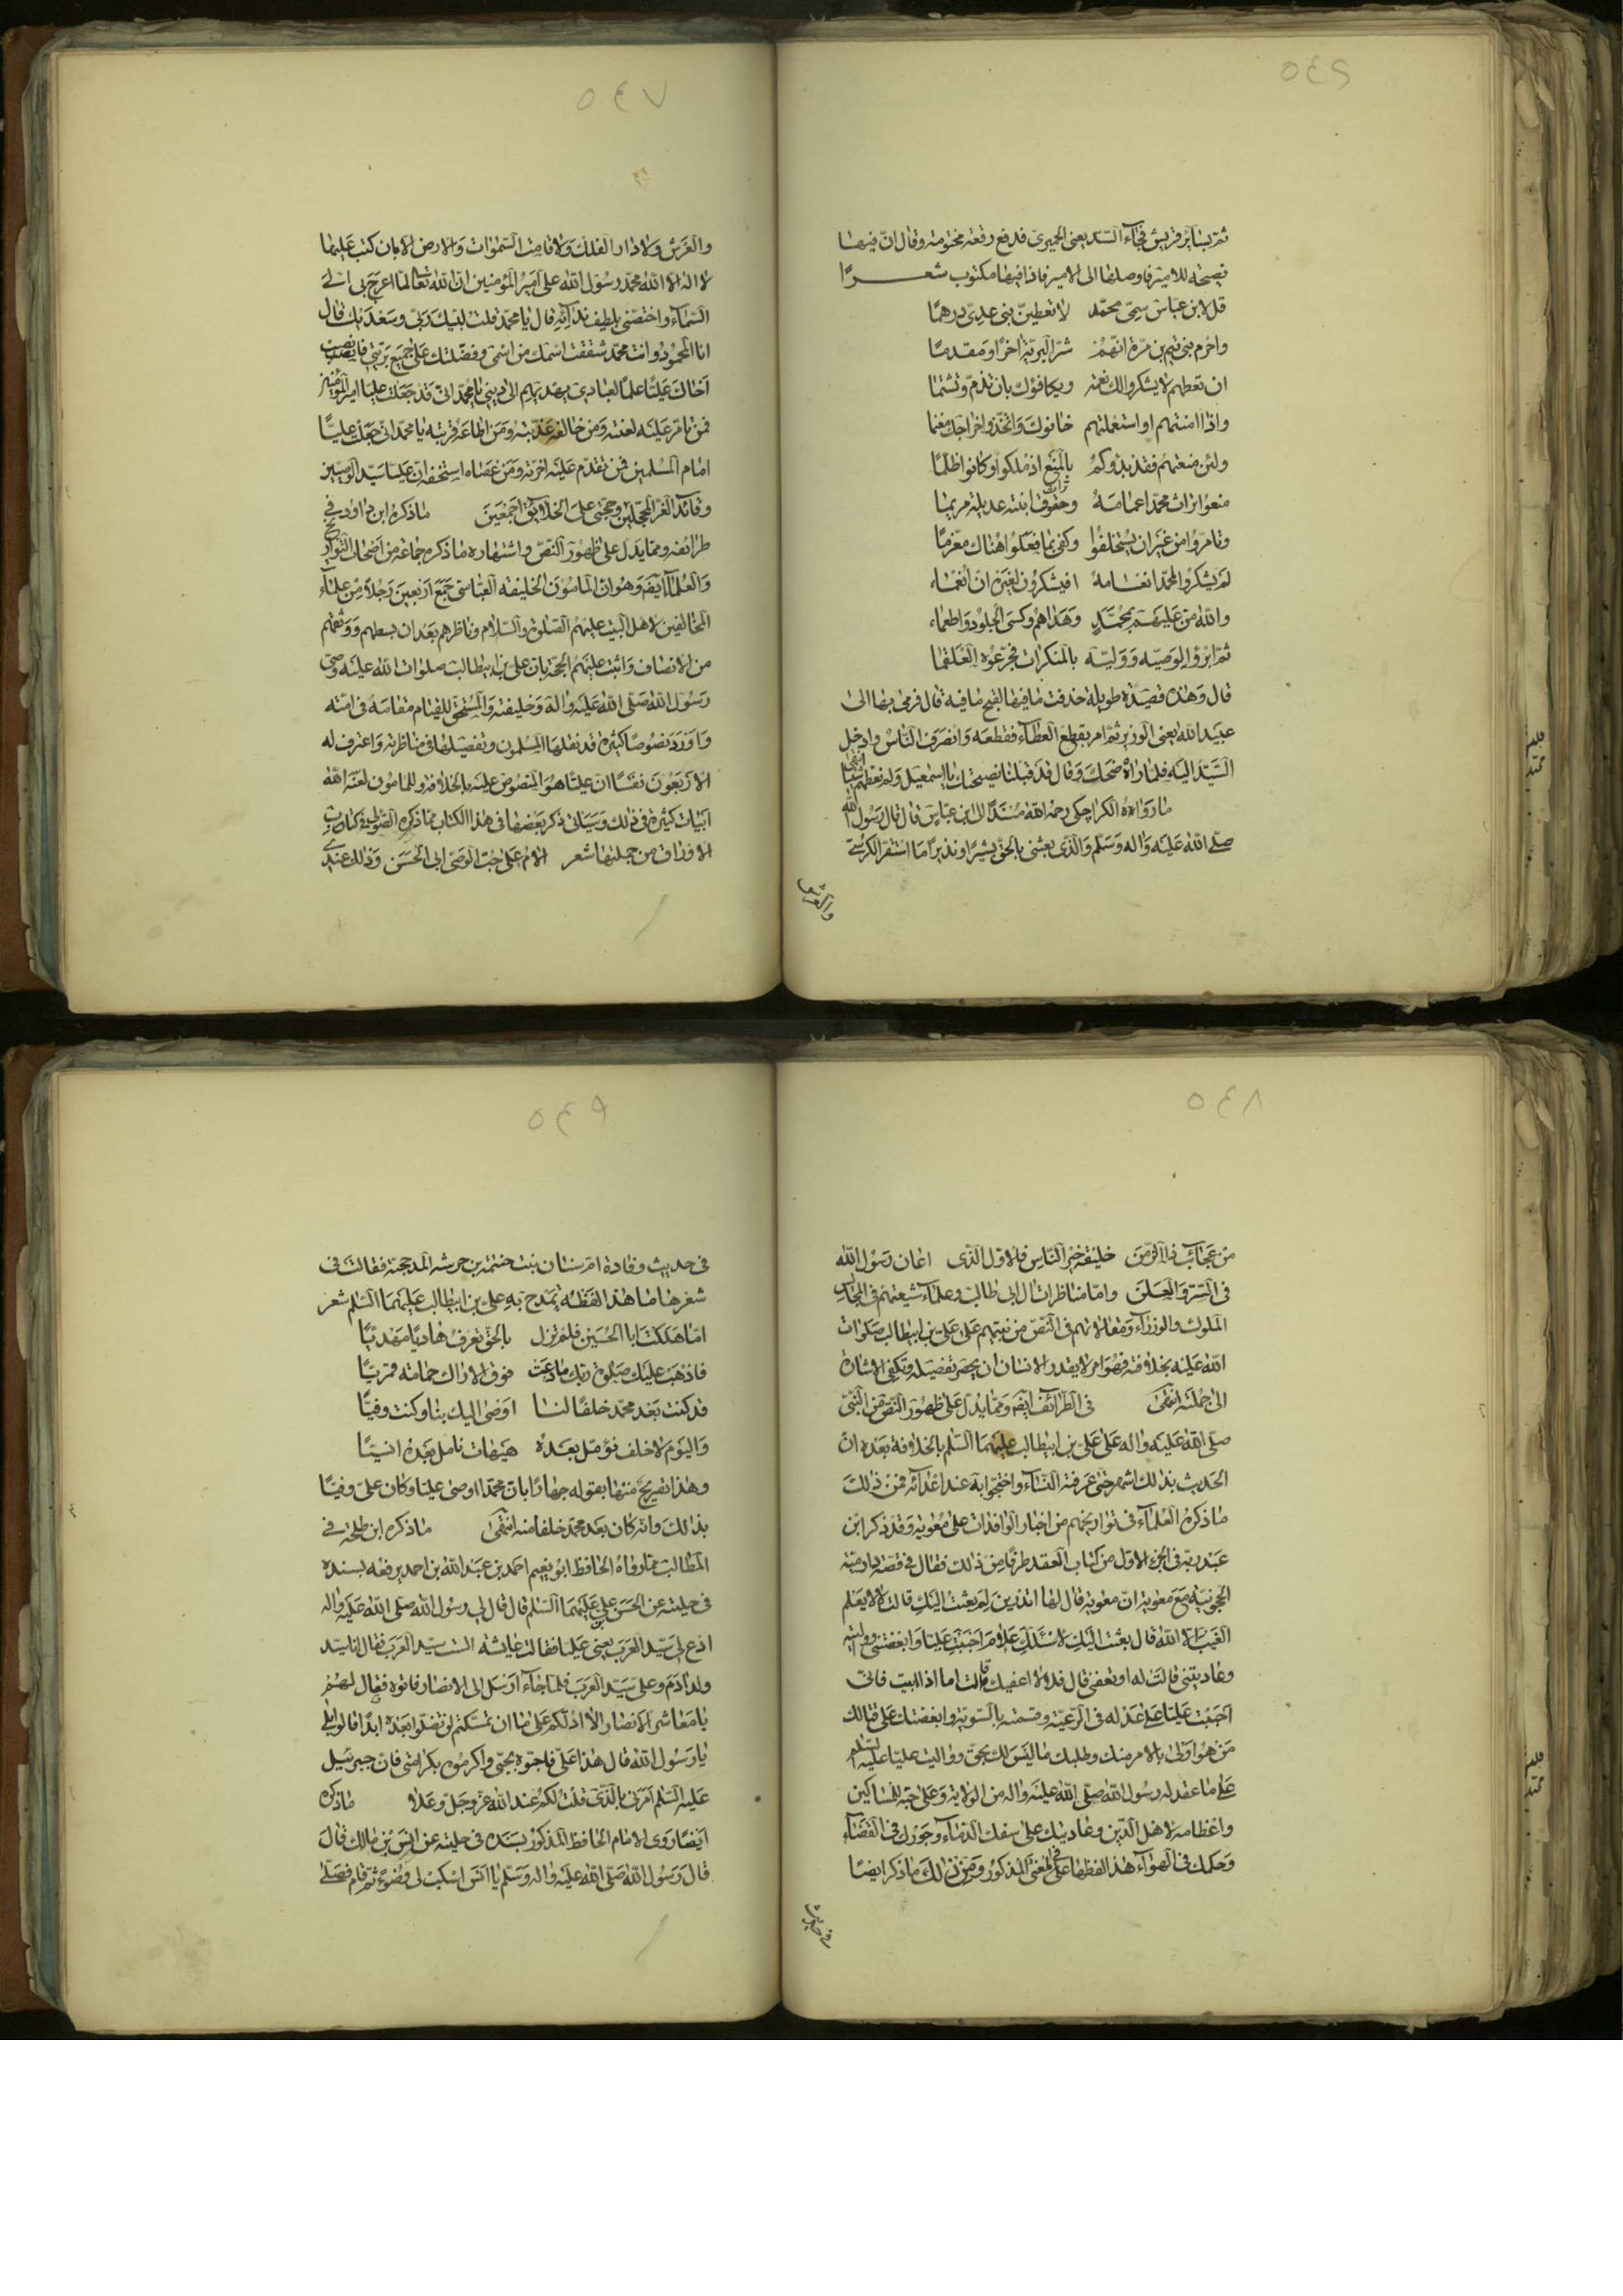 ٥٤٦
ثم بسائر قريش فجاء السيد يعني الحميري فدفع رقعة مختومة وقال ان فيها
نصيحة للامير فاوصلها الى الامير فاذا فيها مكتوب شعــرًا
قل لابن عباس سمي محمد لا تعطين بني عدي درهما
واحرم بني تيم بن مرة انهم شر البرية اخرا ومقدما
ان تعطهم لا يشكروا لك نعمة ويكافؤك بان تذم وتشتما
واذا امنتهم او استعملتهم خانوك واتخذوا خراجك مغنما
ولئن منعتهم فقد بدؤكم بالمنع اذ ملكوا وكانوا ظلما
منعوا تراث محمد اعمامه وحقوق ابنته عديلة مريما
وتامروا من غير ان يستخلفوا وكفى بما فعلوا هناك مغرما
لم يشكروا لمحمد انعامه افيشكرون لغيره ان انعماء
والله من عليهم بمحمد وهداهم وكسى الجلود واطعماء
ثم ابروا لوصيه ووليه بالمنكرات فجرعوه العلقما
قال وهذه قصيدة طويلة حذفت ما فيها لقبح ما فيه قال فرمى بها الى
عبيد الله يعني الوزير ثم امر بقطع العطاء فقطعه وانصرف الناس وادخل
السيد اليه فلما راه ضحك وقال قد قبلنا نصيحتك يا اسمعيل ولم نعطهم شيئا انتهى
ما رواه الكراجكي رحمه الله مسندًا لابن عباس قال قال رسول الله
صلى الله عليه واله وسلم والذي بعثني بالحق بشيرا ونذيرا ما استقر الكرسي
والعرش
٥٤٧
والعرش ولا دار الفلك ولا قامت السموات والارض الا بان كتب عليها
لا اله الا الله محمد رسول الله علي امير المؤمنين ان الله تعالى لما اعرج بي الى
السماء واختصني بلطيف ندائه قال يا محمد قلت لبيك ربي وسعديك قال
انا المحمود وانت محمد شققت اسمك من اسمي وفضلتك على جميع بريتي فانصب
اخاك عليًا علمًا لعبادي يهديهم الى ديني يا محمد اني قد جعلت عليا امير المؤمنين
فمن تامر عليه لعنته ومن خالفه عذبته ومن اطاعه قربته يا محمد اني جعلت عليًا
امام المسلمين فمن تقدم عليه اخرته ومن عصاه استخفه ان عليا سيد الوصيين
وقائد الغر المحجلين وحجتي على الخلائق اجمعين ما ذكره ابن داود في
طرائفه ومما يدل على ظهور النص واشتهاره ما ذكره جماعة من اصحاب التواريخ
والعلماء ايضه وهو ان المامون الخليفة العباسي جمع اربعين رجلا من علماء
المخالفين لاهل البيت عليهم الصلوة والسلام وناظرهم بعد ان بسطهم ووثقهم
من الانصاف واثبت عليهم الحجة بان علي بن ابيطالب صلوات الله عليه وصي
رسول الله صلى الله عليه واله وخليفته والمستحق للقيام مقامه في امته
واورد نصوصًا كثيرة قد نقلها المسلمون وتفصيلها في مناظرته واعترف له
الاربعون نفسًا ان عليًا هو المنصوص عليه بالخلافة وللمامون لعنه الله
ابيات كثيرة في ذلك وسياتي ذكر بعضها في هذا الكتاب مما ذكره الصولي في كتاب
الاوراق من جملتها شعر الام على حب الوصي ابي الحسن وذلك عندي
٥٤٨
من عجائب ذا الزمن خليفة خير الناس فالاول الذي اعان رسول الله
في السر والعلن واما مناظرات ال ابي طالب وعلماء شيعتهم في مجالس
الملوك والوزراء ومقالاتهم في النص من نبيهم على علي بن ابيطالب صلوات
الله عليه بخلافته فهو امر لا يقدر الانسان ان يحصر تفصيله وتكفي الاشارة
الى جملته انتهى في الطرائف ايضه ومما يدل على ظهور النص من النبي
صلى الله عليه واله على علي بن ابيطالب عليهما السلم بالخلافة بعده ان
الحديث بذلك اشتهر حتى عرفته النساء واحتجوا به عند اعدائه فمن ذلك
ما ذكره العلماء في تواريخهم من اخبار الوافدات على معوية وقد ذكر ابن
عبد ربه في الجزء الاول من كتاب العقد طرفا من ذلك فقال في قصة دارمية
الحجونية مع معوية ان معوية قال لها اتدرين لم بعثت اليك قالت لا يعلم
الغيب الا الله قال بعثت اليك لاسئلك علام احببت عليا وابغضتني وواليته
وعاديتني قالت له او تعفني قال قد لا اعفيك قالت اما اذا ابيت فاني
احببت عليا على عدله في الرعية وقسمته بالسوية وابغضتك على قتالك
من هو اولى بالامر منك وطلبك ما ليس لك بحق وواليت عليا عليه السلم
على ما عقد له رسول الله صلى الله عليه واله من الولاية وعلى حبه للمساكين
واعظامه لاهل الدين وعاديتك على سفك الدماء وجورك في القضاء
وحكمك في الهواء هذا لفظها على المعنى المذكور ومن ذلك ما ذكر ايضا
في حديث
٥٤٩
في حديث وفادة ام سنان بنت خثيمه بن حرشه المدحجية فقالت في
شعرها ما هذا لفظه تمدح به علي بن ابيطالب عليهما السلم شعر
اما هلكت ابا الحسين فلم تزل بالحق تعرف هاديا مهديًا
فاذهب عليك صلوة ربك ما دعت فوق الاراك حمامة قمريًا
قد كنت بعد محمد خلفًا لنا اوصى اليك بنا وكنت وفيًا
واليوم لا خلف نؤمل بعده هيهات نامل بعده انسيًا
وهذا تصريح منها بقوله جهارًا بان محمدا اوصى عليا وكان علي وفيًا
بذلك وانه كان بعد محمد خلفا منه انتهى ما ذكره ابن طلحة في
المطالب مما رواه الحافظ ابو نعيم احمد بن عبد الله بن احمد يرفعه بسنده
في حليته عن الحسن بن علي عليهما السلم قال قال لي رسول الله صلى الله عليه واله
ادع لي سيد العرب يعني عليا فقالت عايشة الست سيد العرب فقال انا سيد
ولد ادم وعلي سيد العرب فلما جاء ارسل الى الانصار فاتوه فقال لهم
يا معاشر الانصار الا ادلكم على ما ان تمسكتم لن تضلوا بعده ابدًا قالوا بلى
يا رسول الله قال هذا علي فاحبوه بحبي واكرموه بكرامتي فان جبرئيل
عليه السلم امرني بالذي قلت لكم عند الله عز وجل وعلا ما ذكره
ايضا روى الامام الحافظ المذكور بسنده في حليته عن انس بن مالك قال
قال رسول الله صلى الله عليه واله وسلم يا انس اسكب لي وضوء ثم قام فصلى